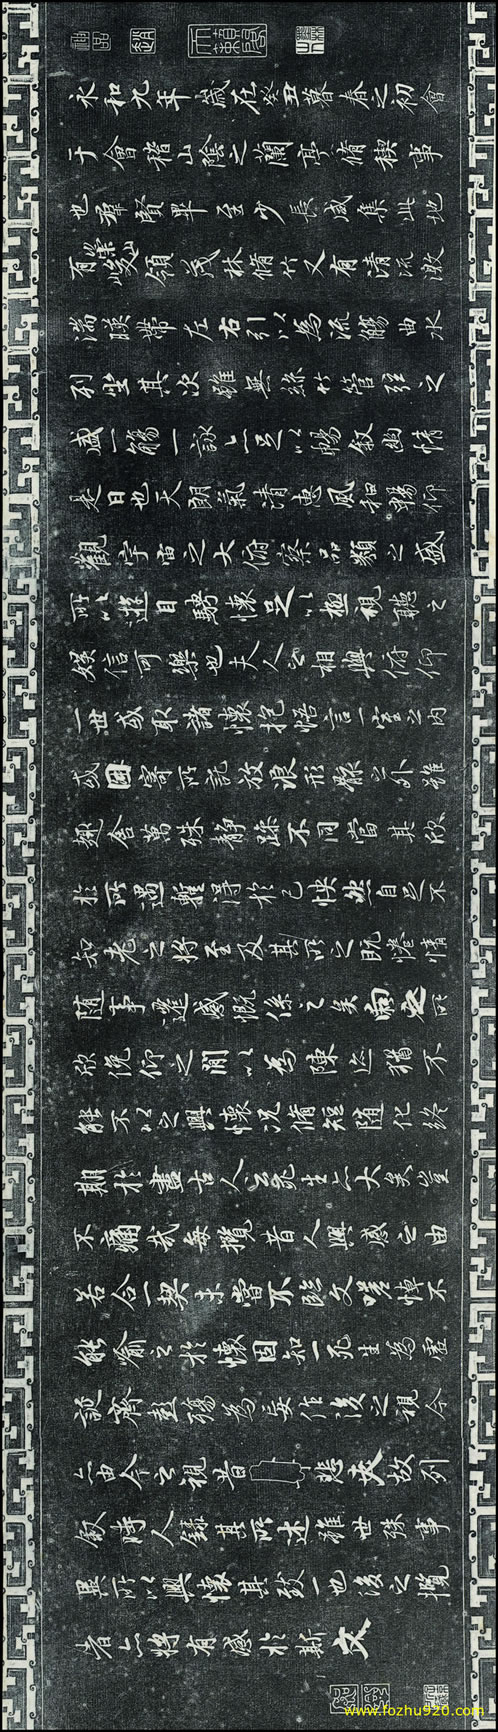 永和九年歲在癸丑暮春之初會
于會稽山陰之蘭亭脩禊事
也羣賢畢至少長咸集此地
有崇山峻領茂林脩竹又有清流激
湍暎帶左右引以為流觴曲水
列坐其次雖無絲竹管弦之
盛一觴一詠亦足以暢敘幽情
是日也天朗氣清惠風和暢仰
觀宇宙之大俯察品類之盛
所以遊目騁懷足以極視聽之
娛信可樂也夫人之相與俯仰
一世或取諸懷抱悟言一室之內
或因寄所託放浪形骸之外雖
趣舍萬殊靜躁不同當其欣
於所遇蹔得於己怏然自足不
知老之將至及其所之既惓情
隨事遷感慨係之矣向之所
欣俛仰之閒以為陳迹猶不
能不以之興懷況脩短隨化終
期於盡古人云死生亦大矣豈
不痛哉每攬昔人興感之由
若合一契未嘗不臨文嗟悼不
能喻之於懷固知一死生為虛
誕齊彭殤為妄作後之視今
亦由今之視昔悲夫故列
敘時人錄其所述雖世殊事
異所以興懷其致一也後之攬
者亦將有感於斯文
www.fozhu920.com